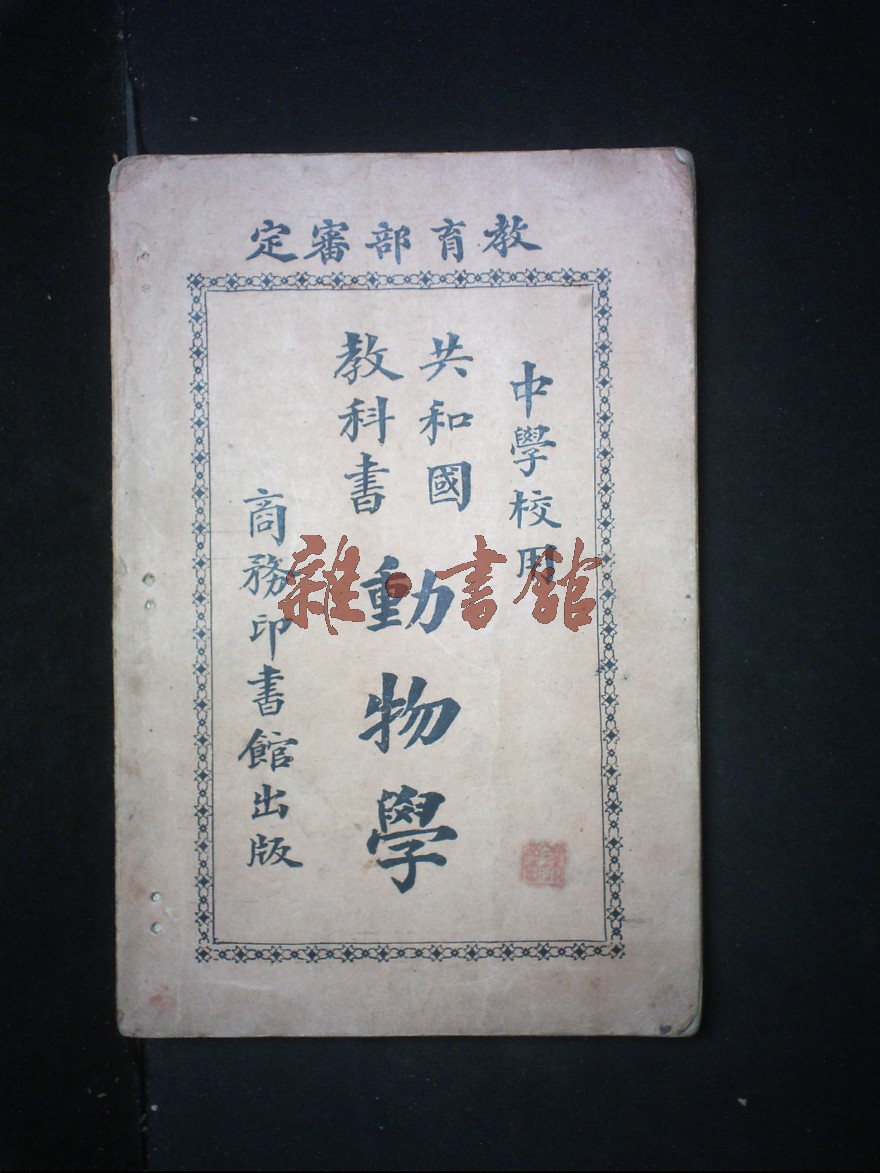 教育部審定
中學校用
共和國
教科書
動物學
商務印書館出版
雜·書館